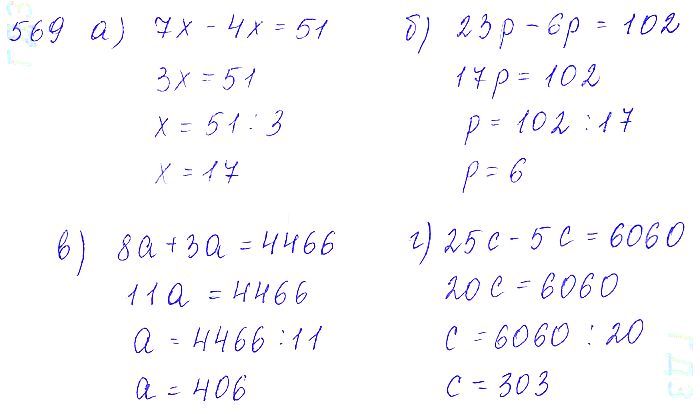 569 а) 7x - 4x = 51
3x = 51
x = 51 : 3
x = 17
б) 23p - 6p = 102
17p = 102
p = 102 : 17
p = 6
в) 8a + 3a = 4466
11a = 4466
a = 4466 : 11
a = 406
г) 25c - 5c = 6060
20c = 6060
c = 6060 : 20
c = 303
ГДЗ